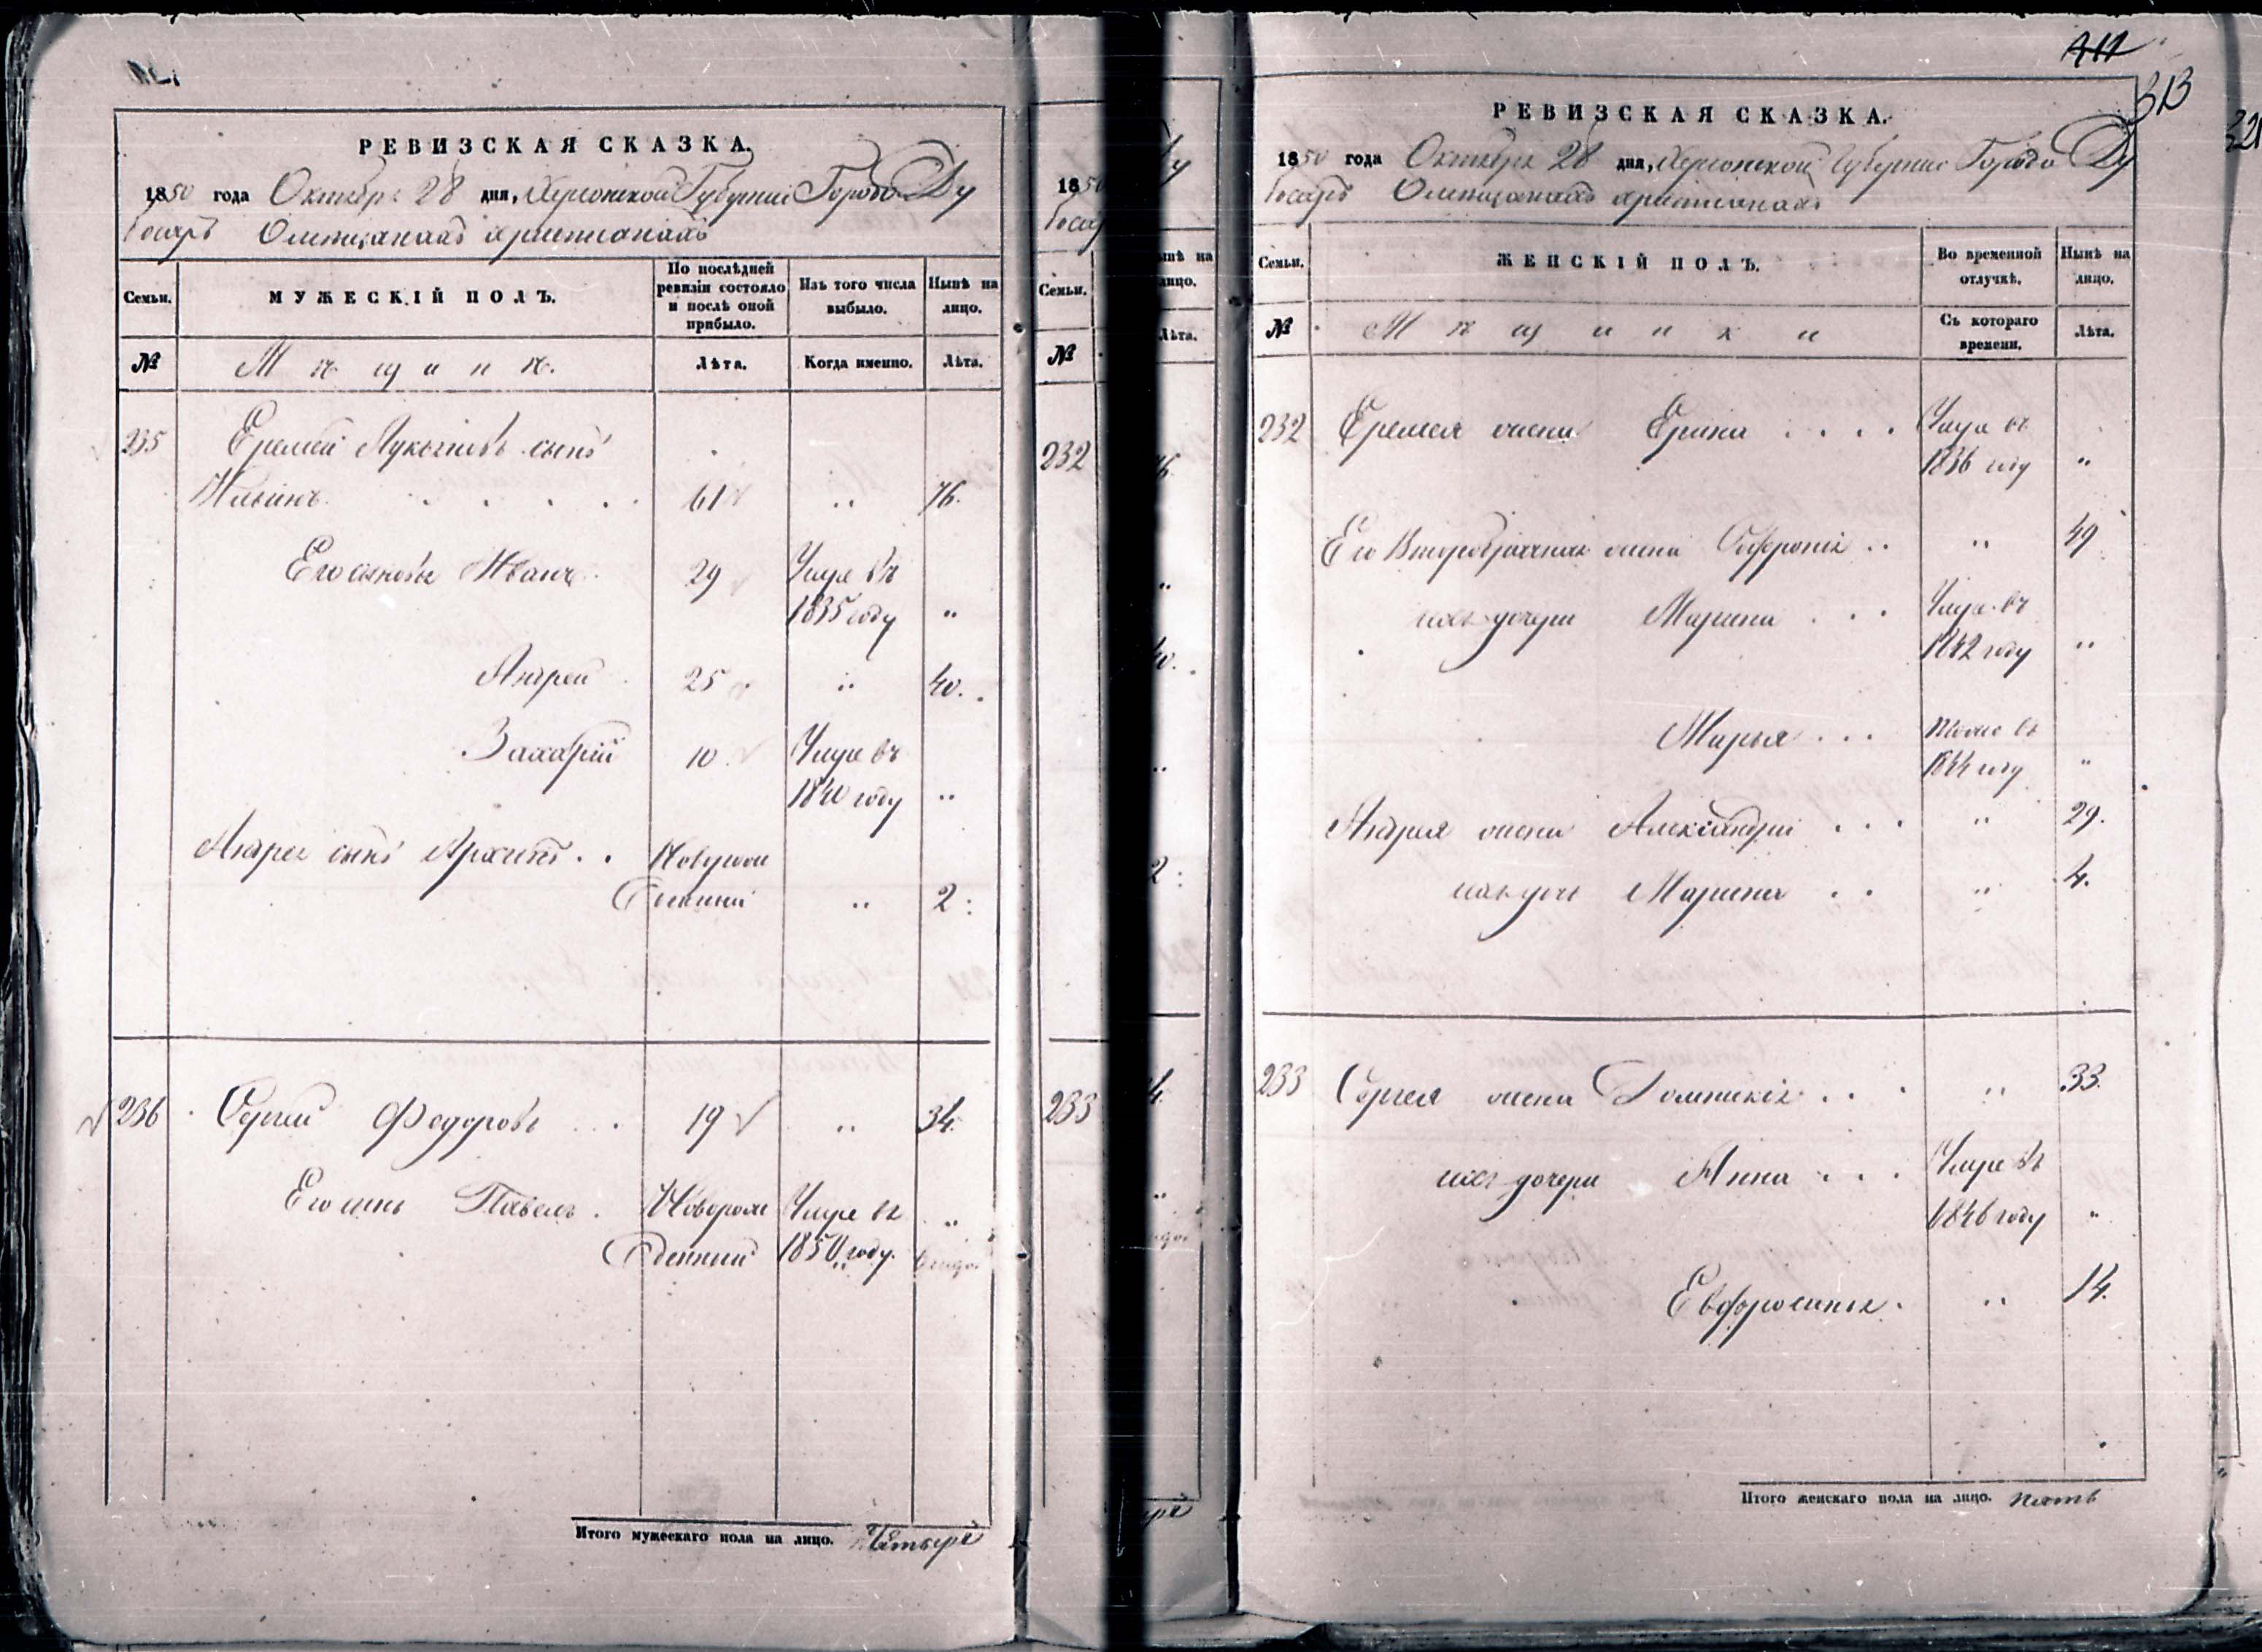 РЕВИЗСКАЯ СКАЗКА.
1850 года Октября 28 дня, Херсонской Губерніи Города Ду
босаръ О мещанахъ христіанахъ
Семьи.
МУЖЕСКІЙ ПОЛЪ.
По послѣдней ревизіи состояло и послѣ оной прибыло.
Изъ того числа выбыло.
Нынѣ на лицо.
№
Мѣщанѣ.
Лѣта.
Когда именно.
Лѣта.
235 Еремей Лукьяновъ сынъ
Ильинъ 61 " 76.
Его сыновья Иванъ 29 Умре въ
1835 году "
Андрей 25 " 40.
Захарій 10 Умре въ
1840 году "
Андрея сынъ Новорож
денный " 2
236 Сергій Федоровъ 19 " 34.
Его сынъ Павелъ Новорож Умре въ "
денный 1850 году.
Итого мужескаго пола на лицо. Четыре
1850
босар
Семьи.
№
232
233
ынѣ на
лицо.
Лѣта.
411
313
321
РЕВИЗСКАЯ СКАЗКА.
1850 года Октября 28 дня, Херсонской Губерніи Города Ду
босаръ О мещанахъ христіанахъ
Семьи.
ЖЕНСКІЙ ПОЛЪ.
Во временной отлучкѣ.
Нынѣ на лицо.
№
Мѣщанки
Съ котораго времени.
Лѣта.
232 Еремея жена Ерина Умре въ
1836 году "
Его Второбрачная жена Софронія " 49
ихъ дочери Марина Умре въ
1842 году "
Марья въ
1844 году "
Андрея жена Александра " 29.
ихъ дочь Марина " 4.
233 Сергея жена Домникія " 33.
ихъ дочери Анна Умре въ
1846 году "
Евфросинья " 14.
Итого женскаго пола на лицо. пять